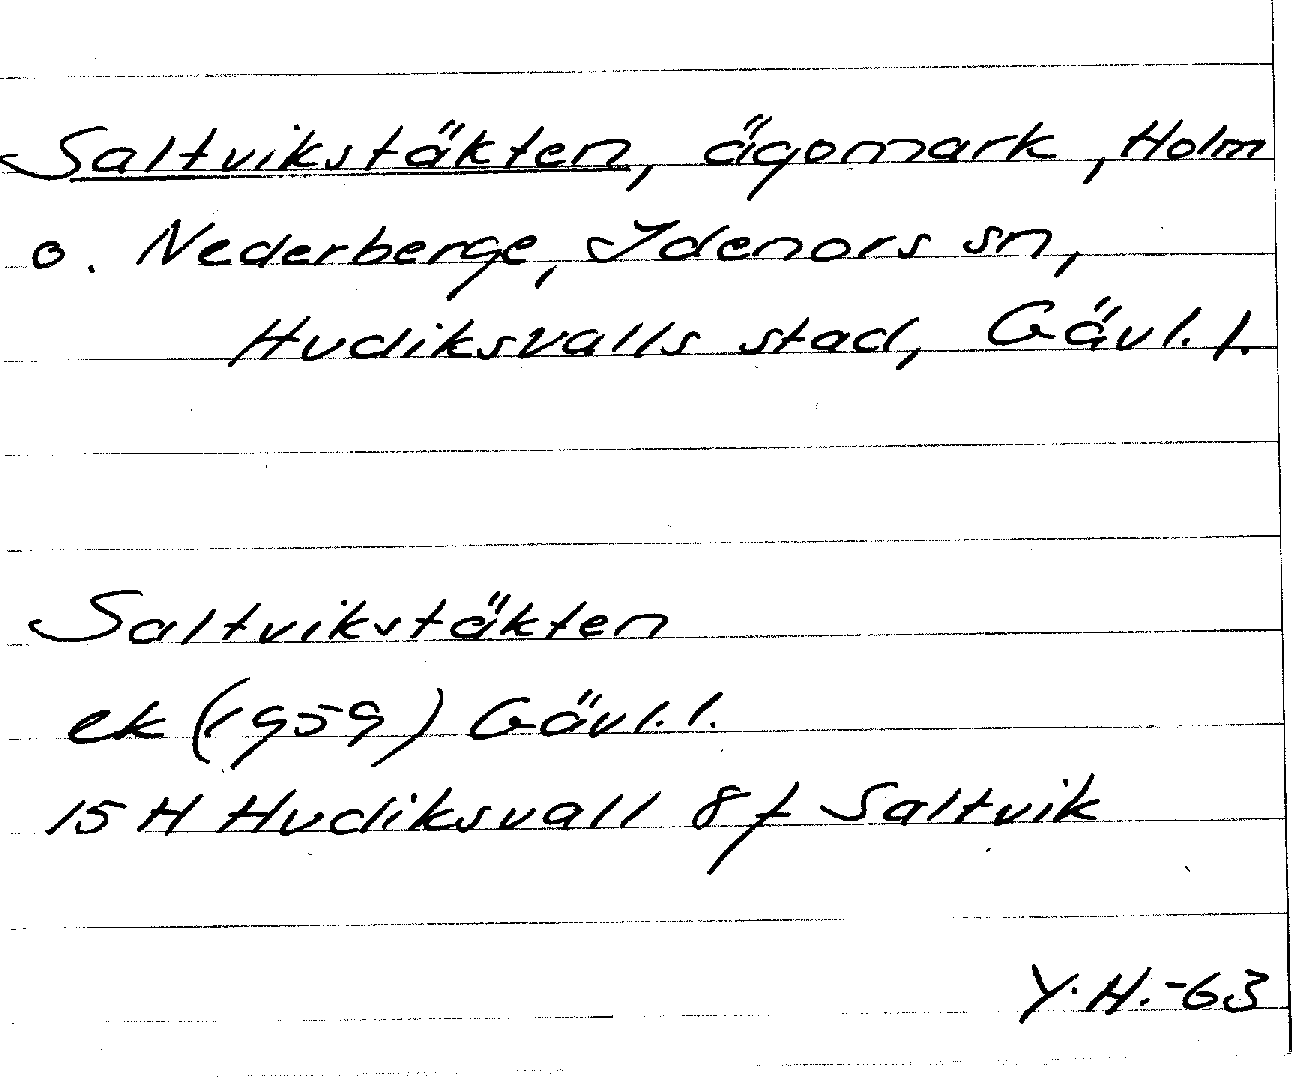 Saltvikstäkten, ägomark, Holm
o. Nederberge, Idenors sn,
Hudiksvalls stad, Gävl. l.
Saltvikstäkten
ek (1959) Gävl. l.
15 H Hudiksvall 8 f Saltvik
Y. H. -63